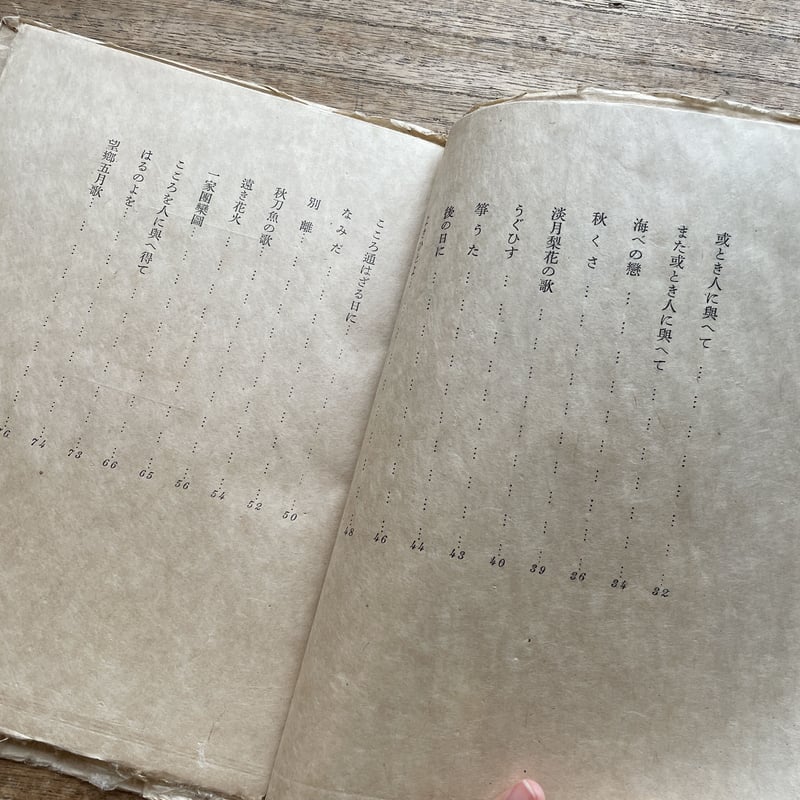 或とき人に與へて……………………32
また或とき人に與へて……………………34
海べの戀……………………36
秋くさ……………………39
淡月梨花の歌……………………40
うぐひす……………………43
箏うた……………………44
後の日に……………………46
48
こころ通はざる日に……………………50
なみだ……………………52
別離……………………54
秋刀魚の歌……………………56
遠き花火……………………65
一家團欒圖……………………66
こころを人に與へ得て……………………73
はるのよを……………………74
望郷五月歌……………………76